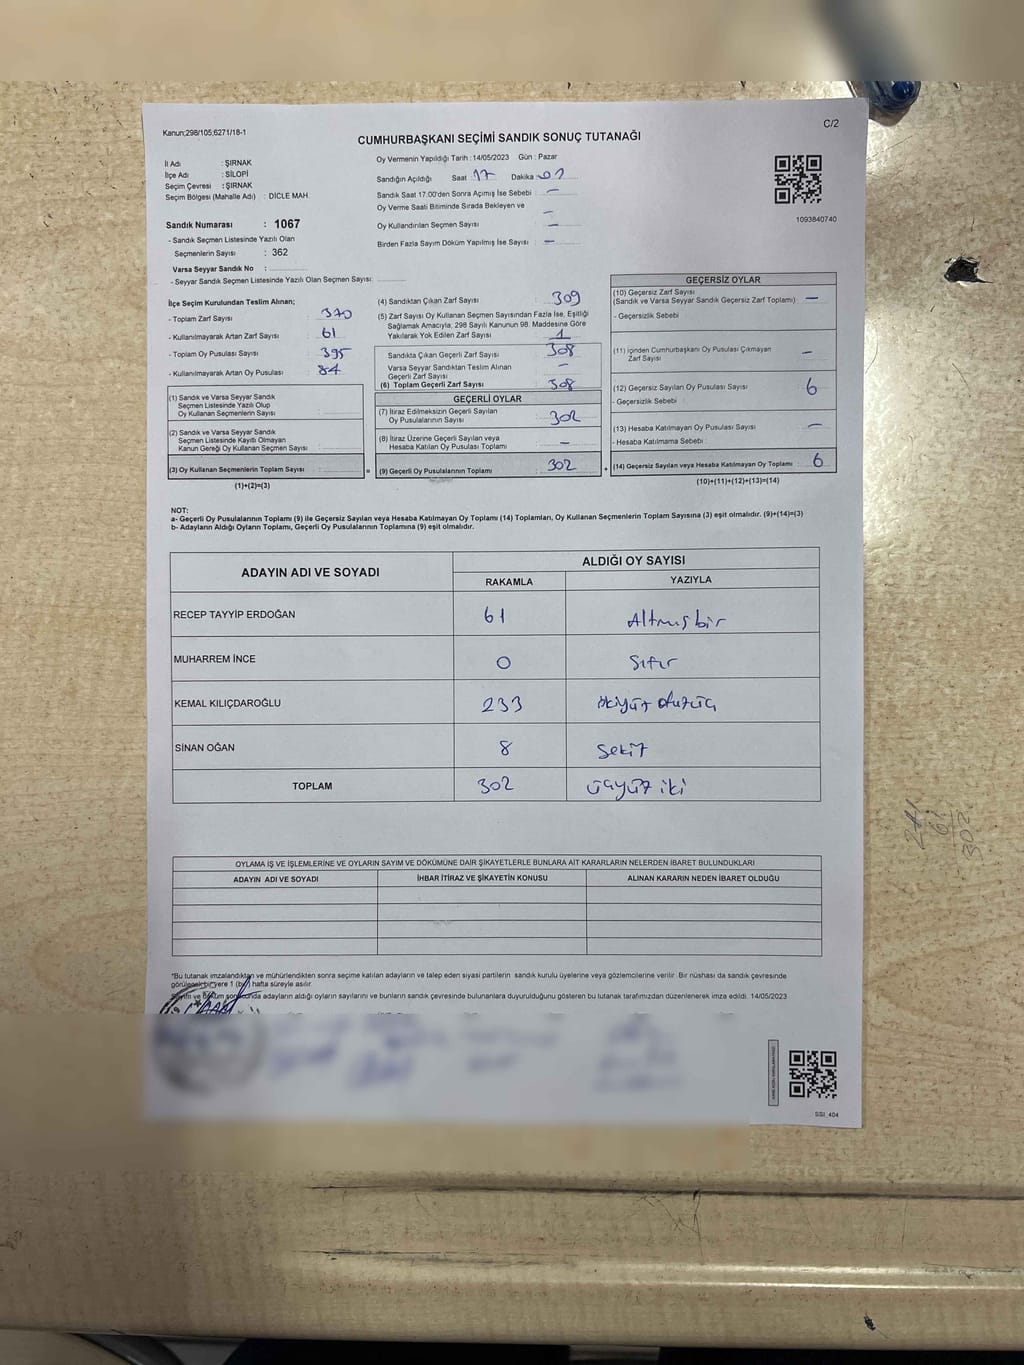 Kanun;298/105;6271/18-1
C/2
CUMHURBAŞKANI SEÇİMİ SANDIK SONUÇ TUTANAĞI
İl Adı : ŞIRNAK
İlçe Adı : SİLOPİ
Seçim Çevresi : ŞIRNAK
Seçim Bölgesi (Mahalle Adı) : DİCLE MAH.
Sandık Numarası : 1067
- Sandık Seçmen Listesinde Yazılı Olan
Seçmenlerin Sayısı : 362
Varsa Seyyar Sandık No :
- Seyyar Sandık Listesinde Yazılı Olan Seçmen Sayısı:
Oy Vermenin Yapıldığı Tarih : 14/05/2023 Gün : Pazar
Sandığın Açıldığı Saat 17 Dakika 01
Sandık Saat 17.00'den Sonra Açımış İse Sebebi : —
Oy Verme Saati Bitiminde Sırada Bekleyen ve
Oy Kullandırılan Seçmen Sayısı : —
Birden Fazla Sayım Döküm Yapılmış İse Sayısı : —
1093840740
İlçe Seçim Kurulundan Teslim Alınan;
- Toplam Zarf Sayısı : 370
- Kullanılmayarak Artan Zarf Sayısı : 61
- Toplam Oy Pusulası Sayısı : 395
- Kullanılmayarak Artan Oy Pusulası : 84
(1) Sandık ve Varsa Seyyar Sandık
Seçmen Listesinde Yazılı Olup
Oy Kullanan Seçmenlerin Sayısı :
(2) Sandık ve Varsa Seyyar Sandık
Seçmen Listesinde Kayıtlı Olmayan
Kanun Gereği Oy Kullanan Seçmen Sayısı :
(3) Oy Kullanan Seçmenlerin Toplam Sayısı :
(1)+(2)=(3)
(4) Sandıktan Çıkan Zarf Sayısı : 309
(5) Zarf Sayısı Oy Kullanan Seçmen Sayısından Fazla İse, Eşitliği
Sağlamak Amacıyla, 298 Sayılı Kanunun 98. Maddesine Göre
Yakılarak Yok Edilen Zarf Sayısı : 1
Sandıkta Çıkan Geçerli Zarf Sayısı : 308
Varsa Seyyar Sandıktan Teslim Alınan
Geçerli Zarf Sayısı : —
(6) Toplam Geçerli Zarf Sayısı : 308
GEÇERLİ OYLAR
(7) İtiraz Edilmeksizin Geçerli Sayılan
Oy Pusulalarının Sayısı : 302
(8) İtiraz Üzerine Geçerli Sayılan veya
Hesaba Katılan Oy Pusulası Toplamı : —
= (9) Geçerli Oy Pusulalarının Toplamı : 302 +
GEÇERSİZ OYLAR
(10) Geçersiz Zarf Sayısı
(Sandık ve Varsa Seyyar Sandık Geçersiz Zarf Toplamı) : —
- Geçersizlik Sebebi :
(11) İçinden Cumhurbaşkanı Oy Pusulası Çıkmayan
Zarf Sayısı : —
(12) Geçersiz Sayılan Oy Pusulası Sayısı : 6
- Geçersizlik Sebebi :
(13) Hesaba Katılmayan Oy Pusulası Sayısı : —
- Hesaba Katılmama Sebebi :
(14) Geçersiz Sayılan veya Hesaba Katılmayan Oy Toplamı : 6
(10)+(11)+(12)+(13)=(14)
NOT:
a- Geçerli Oy Pusulalarının Toplamı (9) ile Geçersiz Sayılan veya Hesaba Katılmayan Oy Toplamı (14) Toplamları, Oy Kullanan Seçmenlerin Toplam Sayısına (3) eşit olmalıdır. (9)+(14)=(3)
b- Adayların Aldığı Oyların Toplamı, Geçerli Oy Pusulalarının Toplamına (9) eşit olmalıdır.
ADAYIN ADI VE SOYADI
ALDIĞI OY SAYISI
RAKAMLA YAZIYLA
RECEP TAYYİP ERDOĞAN 61 Altmışbir
MUHARREM İNCE 0 Sıfır
KEMAL KILIÇDAROĞLU 233 ikiyüz otuzüç
SİNAN OĞAN 8 Sekiz
TOPLAM 302 üçyüz iki
241
61
302
OYLAMA İŞ VE İŞLEMLERİNE VE OYLARIN SAYIM VE DÖKÜMÜNE DAİR ŞİKAYETLERLE BUNLARA AİT KARARLARIN NELERDEN İBARET BULUNDUKLARI
ADAYIN ADI VE SOYADI İHBAR İTİRAZ VE ŞİKAYETİN KONUSU ALINAN KARARIN NEDEN İBARET OLDUĞU
*Bu tutanak imzalandıktan ve mühürlendikten sonra seçime katılan adayların ve talep eden siyasi partilerin sandık kurulu üyelerine veya gözlemcilerine verilir. Bir nüshası da sandık çevresinde
görülebilir yere 1 (bir) hafta süreyle asılır.
Sayım ve döküm sonucunda adayların aldığı oyların sayılarını ve bunların sandık çevresinde bulunanlara duyurulduğunu gösteren bu tutanak tarafımızdan düzenlenerek imza edildi. 14/05/2023
SSI_404